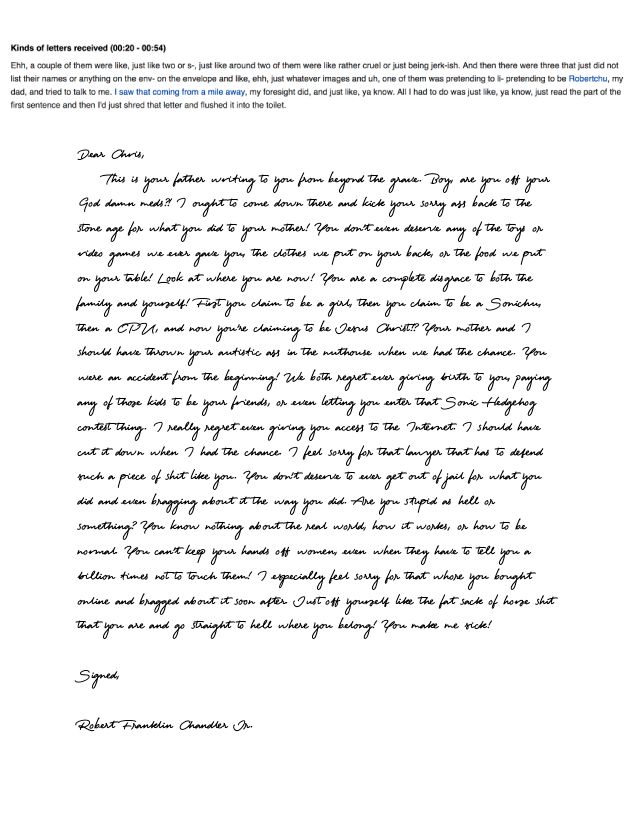 Kinds of letters received (00:20 - 00:54)
Ehh, a couple of them were like, just like two or s-, just like around two of them were like rather cruel or just being jerk-ish. And then there were three that just did not
list their names or anything on the env- on the envelope and like, ehh, just whatever images and uh, one of them was pretending to li- pretending to be Robertchu, my
dad, and tried to talk to me. I saw that coming from a mile away, my foresight did, and just like, ya know. All I had to do was just like, ya know, just read the part of the
first sentence and then I'd just shred that letter and flushed it into the toilet.
Dear Chris,
This is your father writing to you from beyond the grave. Boy, are you off your
God damn meds?! I ought to come down there and kick your sorry ass back to the
stone age for what you did to your mother! You don't even deserve any of the toys or
video games we ever gave you, the clothes we put on your back, or the food we put
on your table! Look at where you are now! You are a complete disgrace to both the
family and yourself! First you claim to be a girl, then you claim to be a Sonichu,
then a CPU, and now you're claiming to be Jesus Christ!? Your mother and I
should have thrown your autistic ass in the nuthouse when we had the chance. You
were an accident from the beginning! We both regret ever giving birth to you, paying
any of those kids to be your friends, or even letting you enter that Sonic Hedgehog
contest thing. I really regret even giving you access to the Internet. I should have
cut it down when I had the chance. I feel sorry for that lawyer that has to defend
such a piece of shit like you. You don't deserve to ever get out of jail for what you
did and even bragging about it the way you did. Are you stupid as hell or
something? You know nothing about the real world, how it works, or how to be
normal. You can't keep your hands off women, even when they have to tell you a
billion times not to touch them! I especially feel sorry for that whore you bought
online and bragged about it soon after. Just off yourself like the fat sack of horse shit
that you are and go straight to hell where you belong! You make me sick!
Signed,
Robert Franklin Chandler Jr.